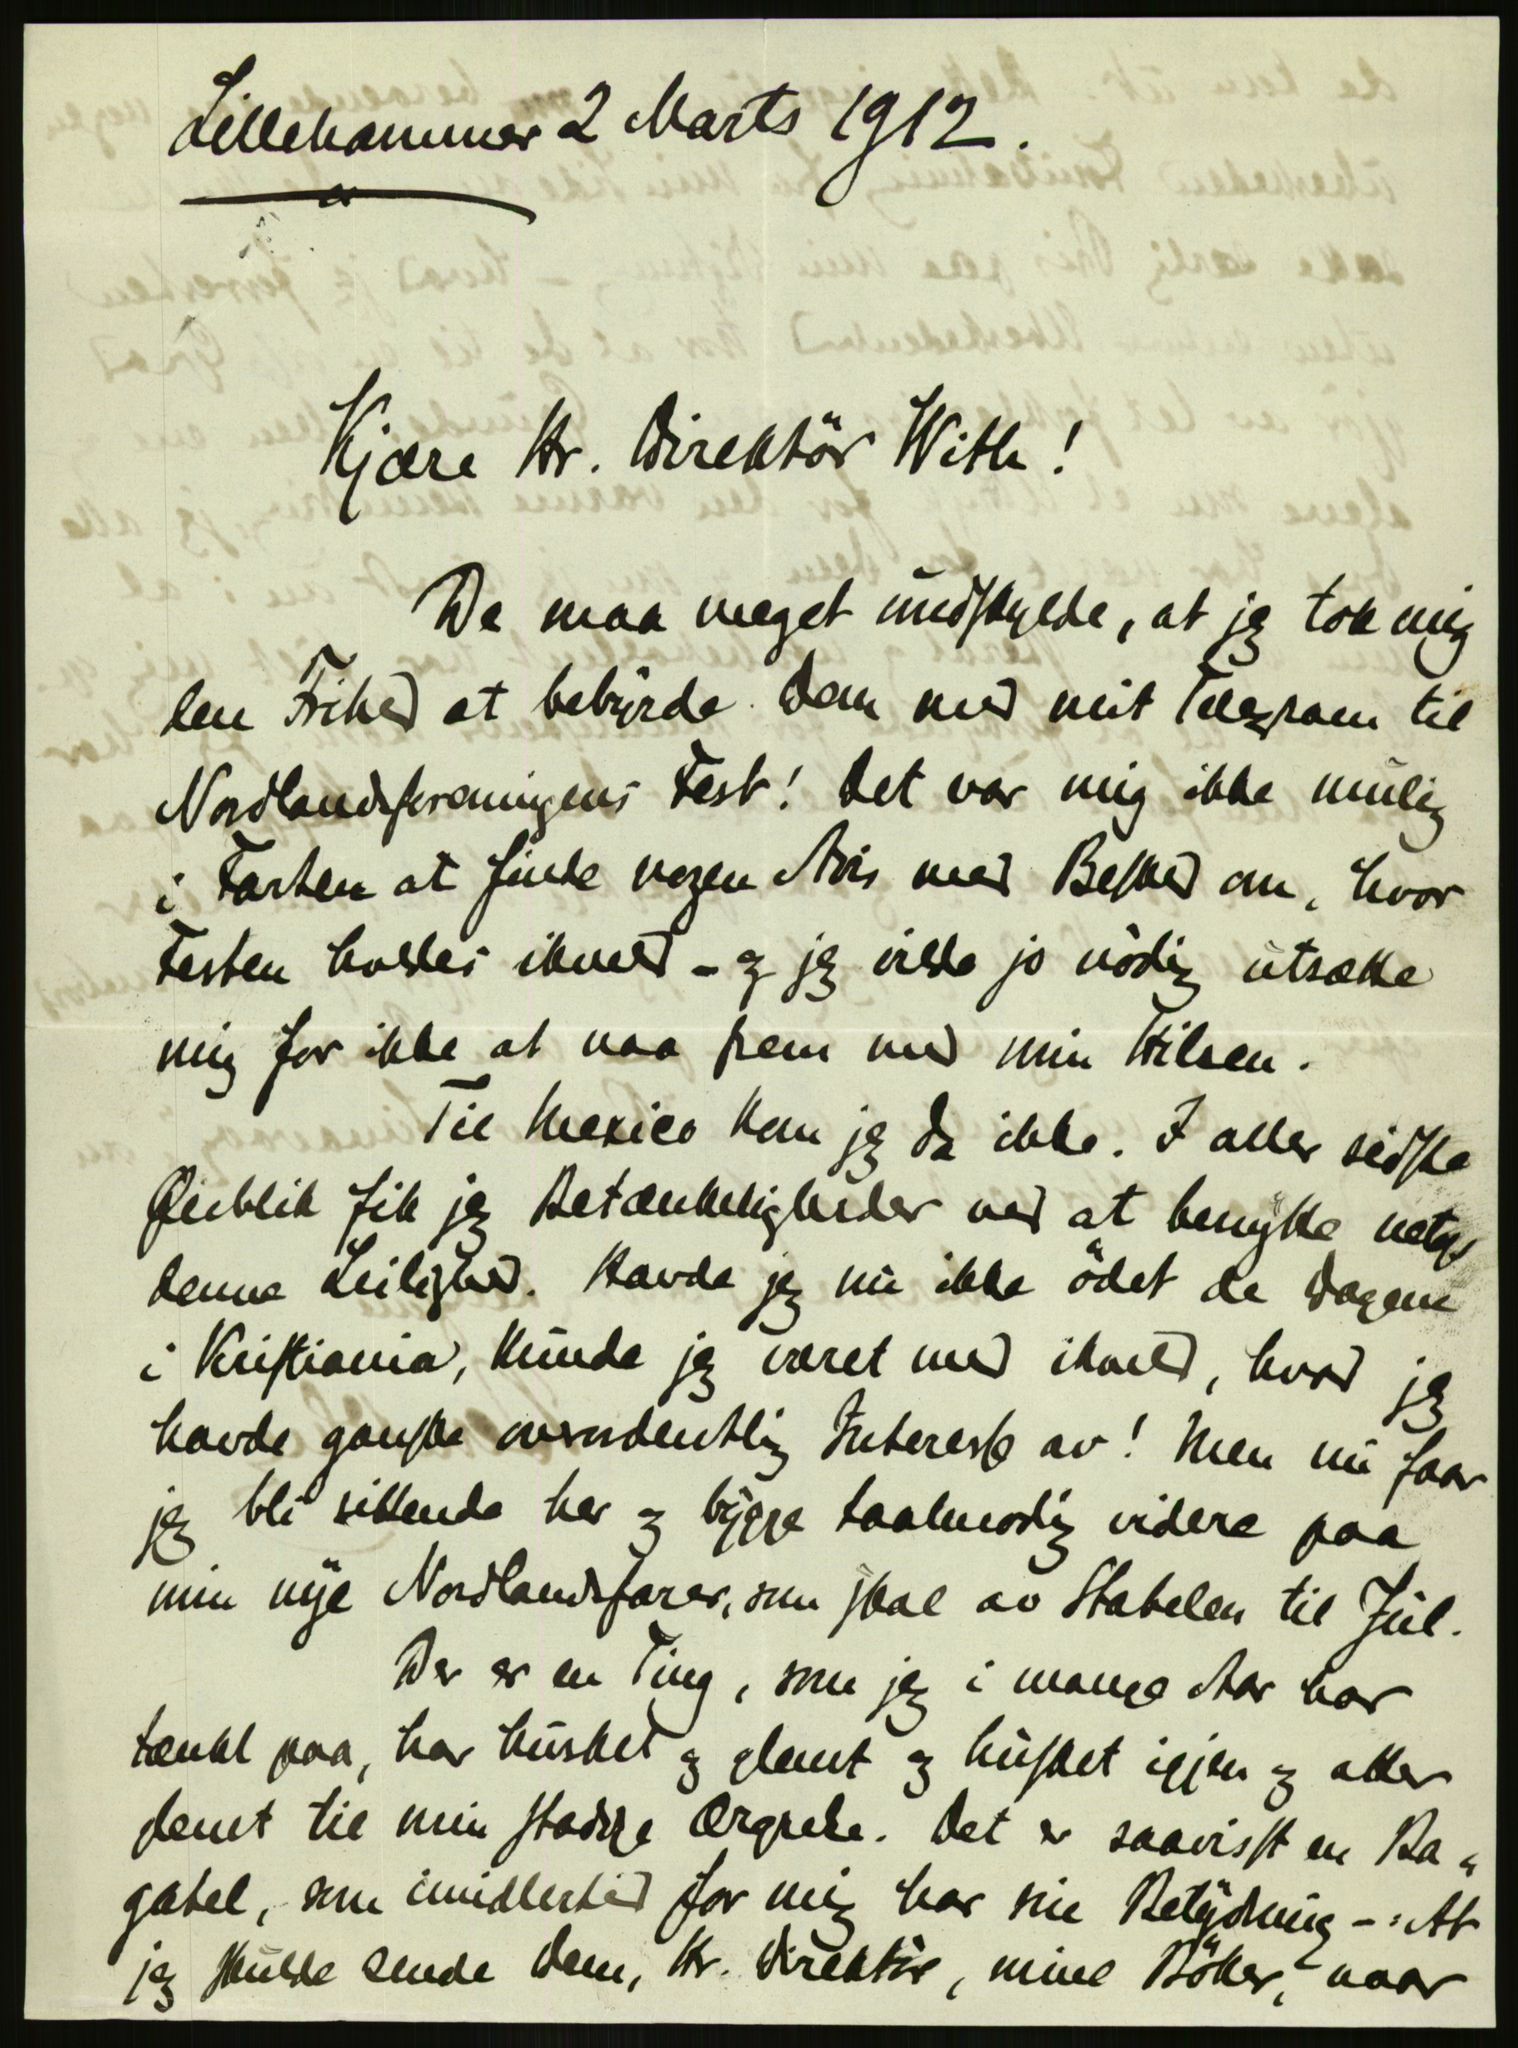 Lillehammer 2 Marts 1912.
Kjære Hr. Direktör With!
De maa meget undskylde, at jeg tok mig
den Frihed at bebyrde Dem med mit Telegram til
Nordlandsforeningens Fest! Det var mig ikke mulig
i Farten at finde nogen Avis med Besked om, hvor
Festen holdes ikveld – og jeg vilde jo nödig utsætte
mig for ikke at naa frem med min Hilsen.
Til Mexico kom jeg da ikke. I aller sidste
Øieblik fik jeg Betænkeligheder ved at benytte netop
denne Leilighed. Havde jeg nu ikke ödet de Dagene
i Kristiania, kunde jeg været med ikveld, hvad jeg
havde ganske overordentlig Interesse av! Men nu faar
jeg bli sittende her og bygge taalmodig videre paa
min nye Nordlandsfarer, som skal av Stabelen til Jul.
Der er en Ting, som jeg i mange Aar har
tænkt paa, har husket og glemt og husket igjen og atter
glemt til min stadige Ærgrelse. Det er saavisst en Ba-
gatel, som imidlertid for mig har sin Betydning –: At
jeg skulde sende Dem, Hr. Direktör, mine Böker, naar